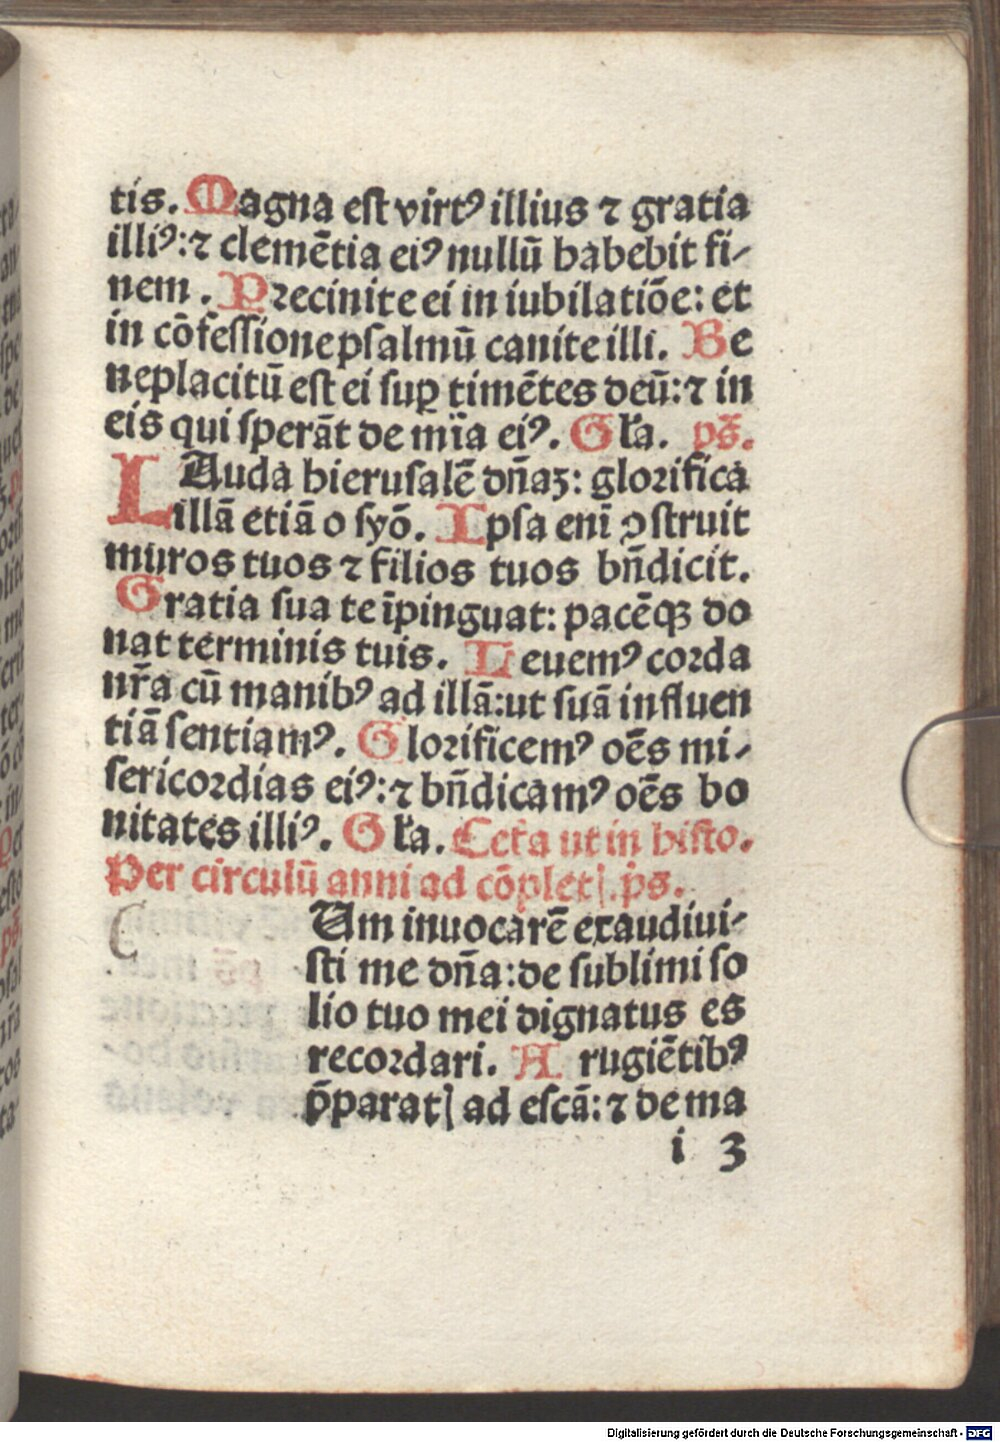 tis. Magna est virtꝰ illius ⁊ gratia
illiꝰ:⁊ clemētia eiꝰ nullū habebit fi-
nem. Precinite ei in iubilatiōe: et
in cōfessione psalmū canite illi. Be
neplacitū est ei suꝑ timētes deū:⁊ in
eis qui sperāt de mīa eiꝰ. Gl'a. ps̄.
LAuda hierusalē dn̄aꝫ: glorifica
illā etiā o syō. Ipsa enī ꝯstruit
muros tuos ⁊ filios tuos bn̄dicit.
Gratia sua te īpinguat: pacēqꝫ do
nat terminis tuis. Leuemꝰ corda
nr̄a cū manibꝰ ad illā:ut suā influen
tiā sentiamꝰ. Glorificemꝰ oēs mi-
sericordias eiꝰ:⁊ bn̄dicamꝰ oēs bo
nitates illiꝰ. Gl'a. Cet'a ut in histo.
Per circulū anni ad cōpletꝭ. p̄s.
CUm inuocarē exaudiui-
sti me dn̄a:de sublimi so
lio tuo mei dignatus es
recordari. A rugiētibꝰ
p̄paratꝭ ad escā:⁊ de ma
i 3
Digitalisierung gefördert durch die Deutsche Forschungsgemeinschaft - DFG